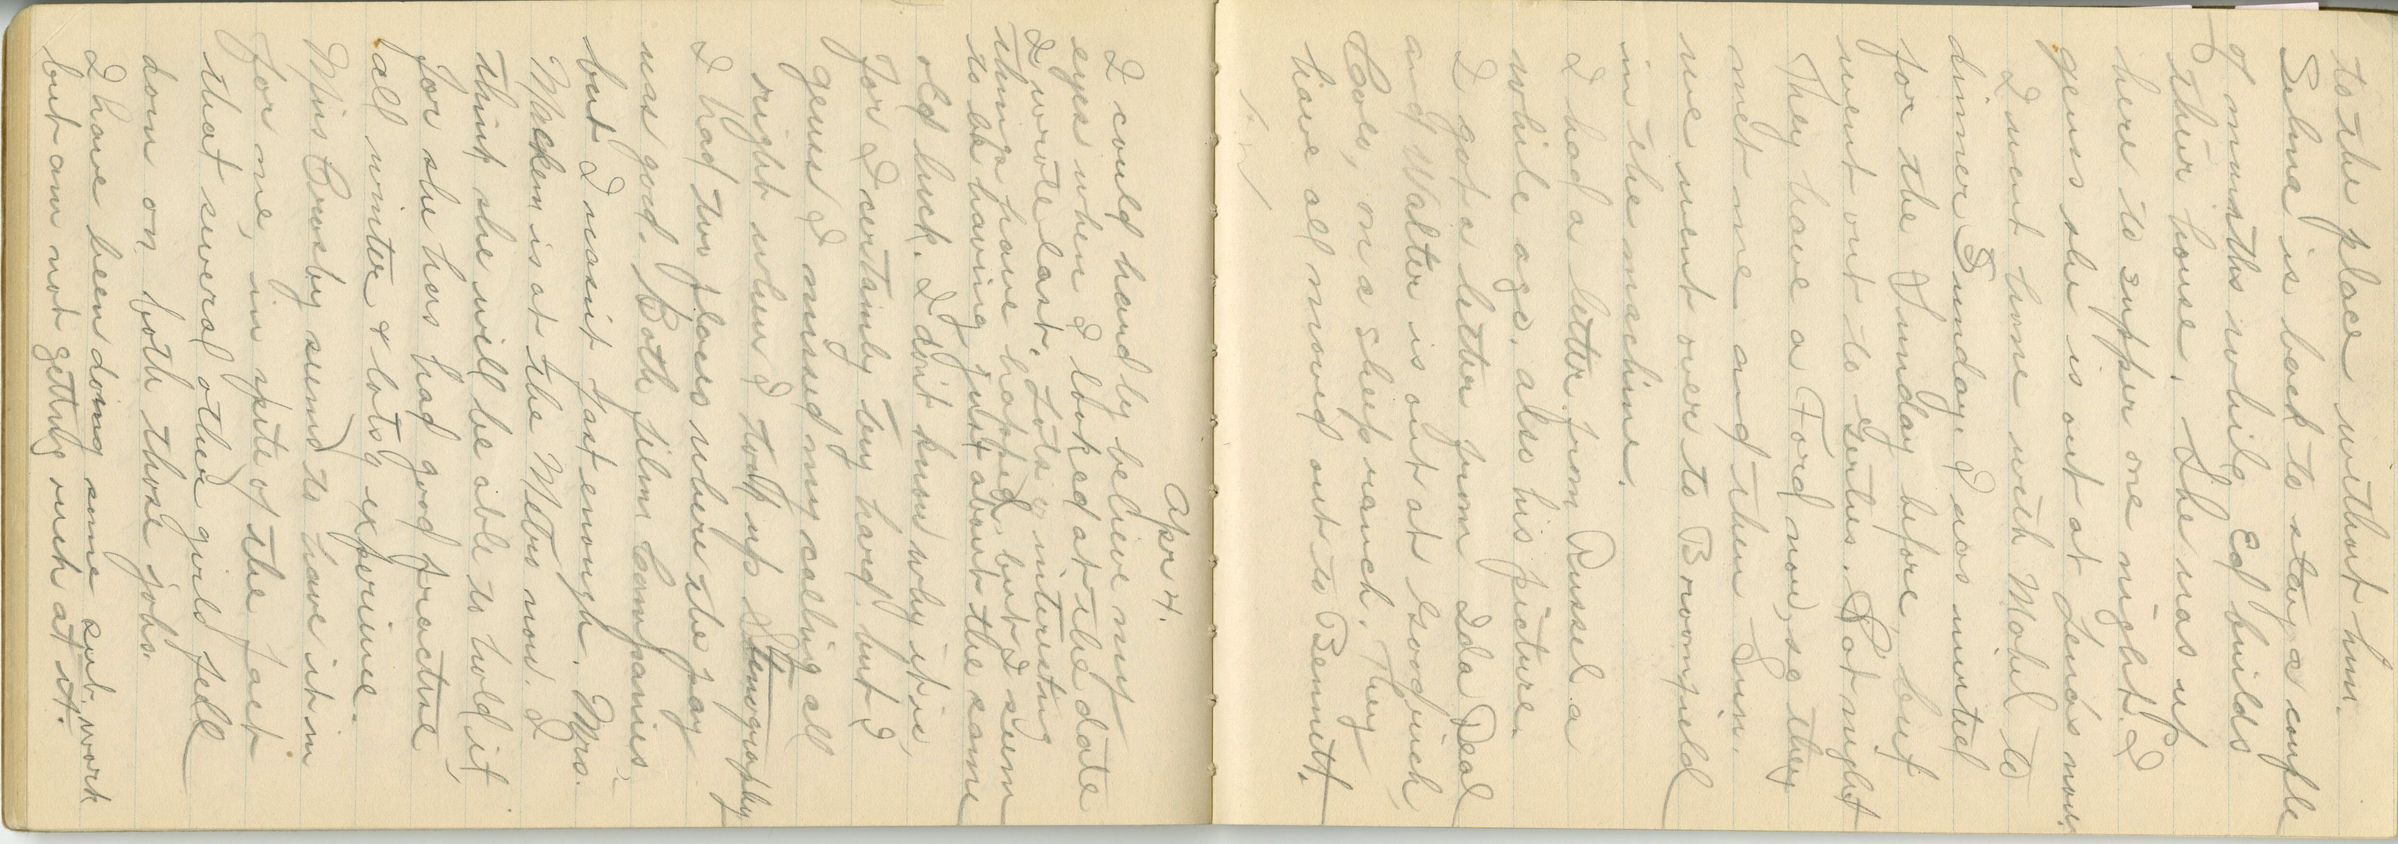 to the place without him.
Selma is back to stay a couple
of months while Ed builds
their house. She was up
here to supper one night. I
guess she is out at Lena's now.
I went home with Mabel to
dinner Sunday. I was invited
for the Sunday before, but
went out to Gertie's. Sat night
They have a Ford now, so they
met me and then Sun.
we went over to Broomfield
in the machine.
I had a letter from Russel a
while ago, also his picture.
I got a letter from Ida Deal
and Walter is out at Goodrich,
Colo, on a sheep ranch. They
have all moved out to Bennett.
Apr 4.
I could hardly believe my
eyes when I looked at the date
I wrote last. Lots o' interesting
things have happened, but I seem
to be having just about the same
old luck. I don't know why it is,
for I certainly try hard, but I
guess I missed my calling all
right when I took up Stenography
I had two places where the pay
was good. Both film Companies,
but I wasn't fast enough. Mrs.
Macken is at the Metro now. I
think she will be able to hold it,
for she has had good practice
all winter & lots o' experience.
Miss Crowsby seemed to have it in
for me, in spite of the fact
that several other girls fell
down on both those jobs.
I have been doing some sub. work
but am not getting rich at it.